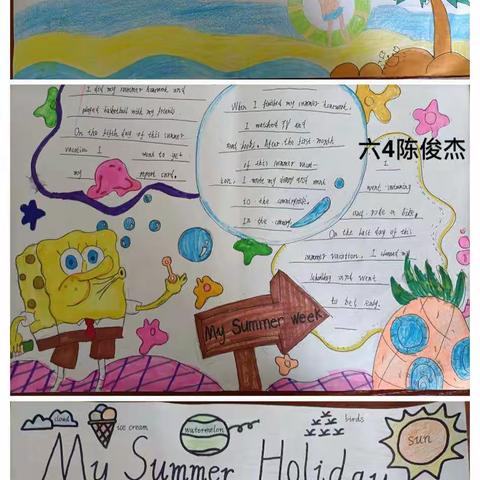 I did my summer homework and
played basketball with my friends
On the fifth day of this summer
vacation I went to get
my report card.
When I finished my summer homework,
I watched TV and
read books. After the first month
of this summer vacat-
ion, I wrote my diary and went
to the countryside.
In the
六4陈俊杰
I
went swimming
and ride a bike.
On the last day of this
summer vacation, I cleaned my
schoolbag and went
to bed early.
My Summer week
cloud
ice cream
watermelon
birds
sun
My Summer Holiday